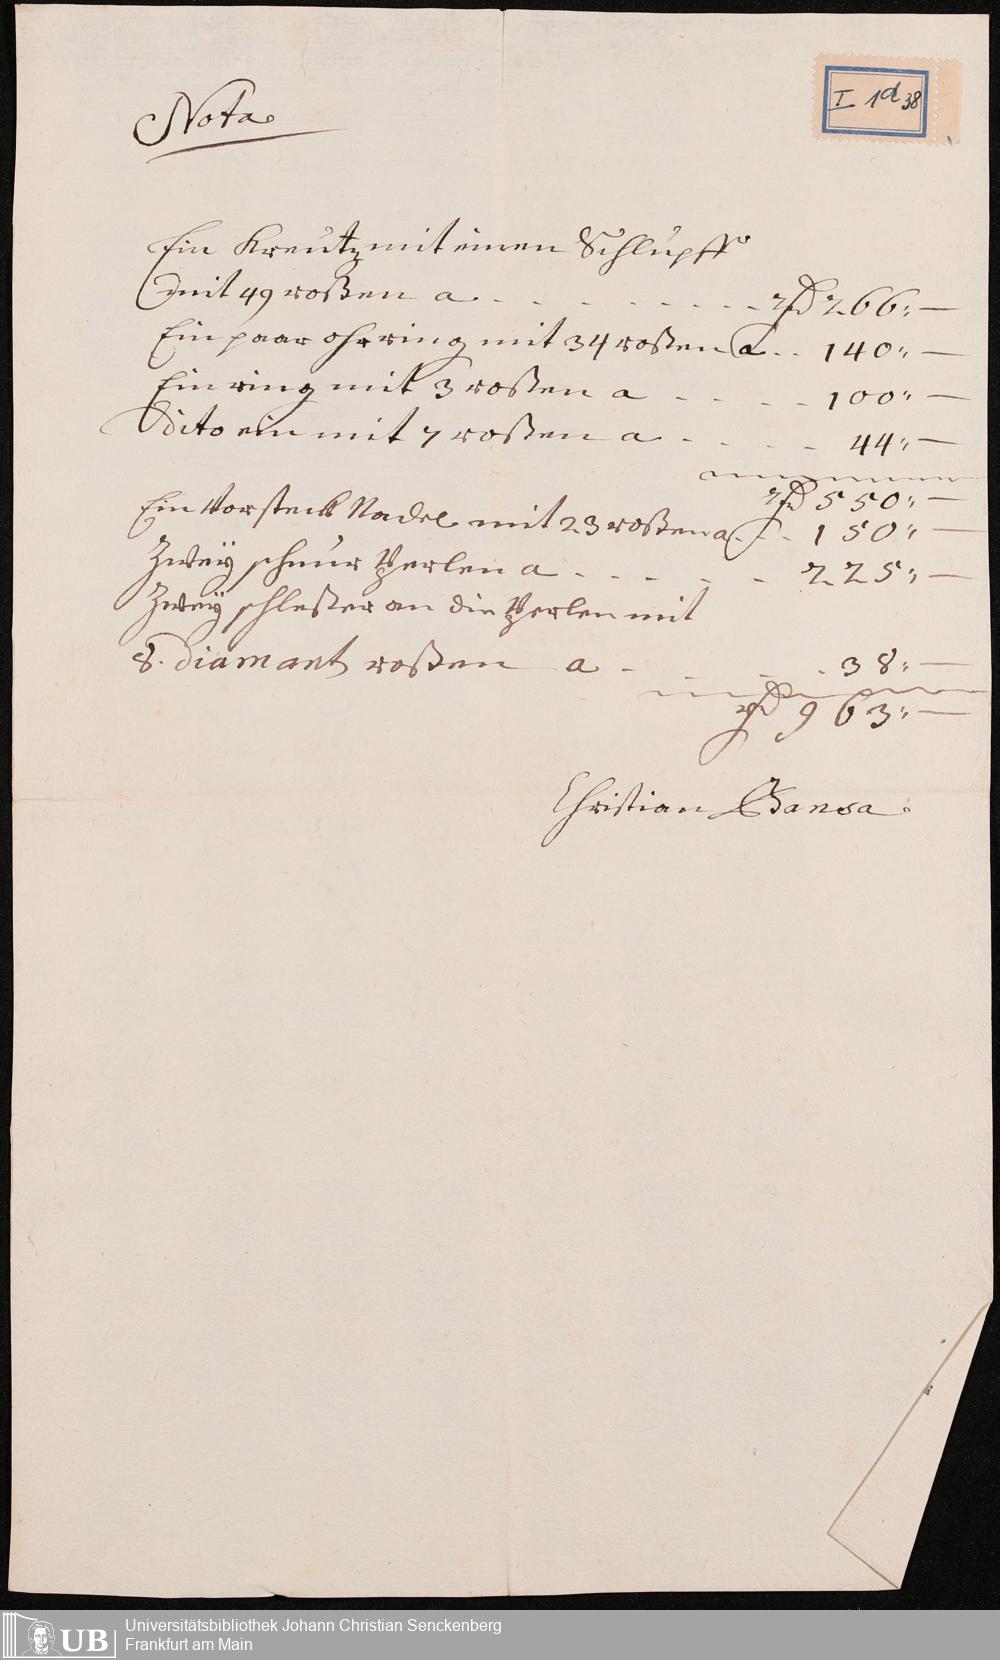 Nota
I 1d 38
Ein Kreutz mit einen Schlupff
mit 49 roßen a - - - - - - - - - rß 266:—
Ein paar ohrring mit 34 roßen a .. 140:—
Ein ring mit 3 roßen a - - - - 100:—
Dito ein mit 7 roßen a - - - - 44:—
550:—
Ein Vorsteck Nadel mit 23 roßen a - - 150:—
Zwey schnur Perlen a - - - - - 225:—
Zwey schleßer an die Perlen mit
8. diamant roßen a - - - - 38:—
963:—
Christian Bansa
UB Universitätsbibliothek Johann Christian Senckenberg
Frankfurt am Main